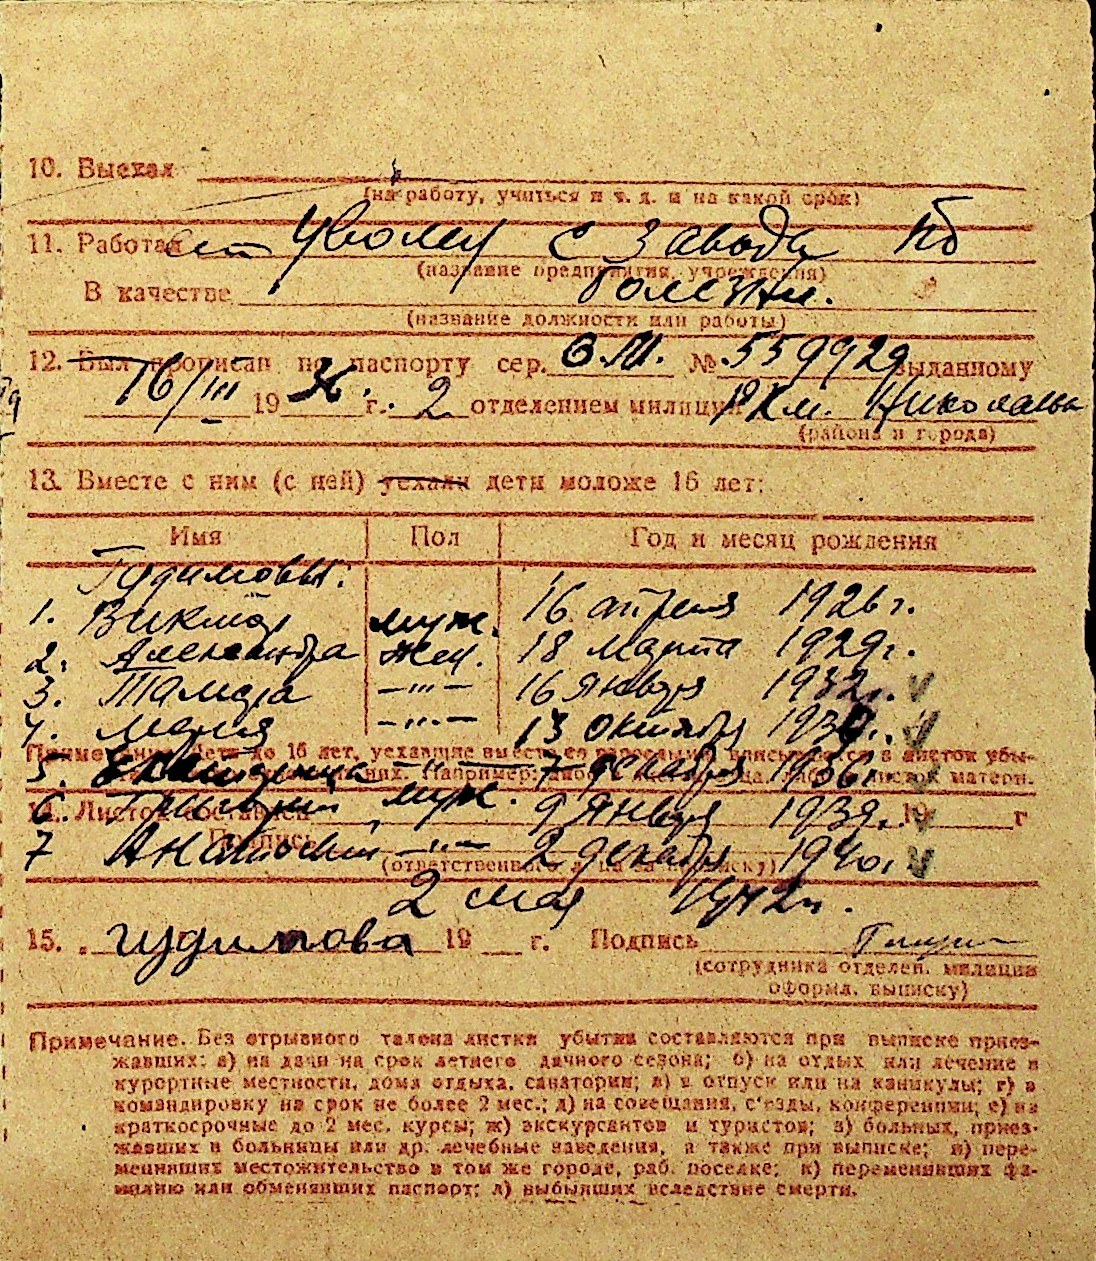 10. Выехал
(на работу, учиться и т. д. и на какой срок)
11. Работал уволен с завода по
(название предприятия, учреждения)
В качестве болезни.
(название должности или работы)
12. Был прописан по паспорту сер. ЭМ. № 559929 выданному
16/III 1936 г. 2 отделением милиции РКМ. Николаева
(района и города)
13. Вместе с ним (с ней) уехали дети моложе 16 лет:
Имя Пол Год и месяц рождения
Гудимовы.
1. Виктор муж. 16 апреля 1926 г.
2. Александра жен. 18 марта 1929 г.
3. Тамара —"— 16 января 1932 г. V
4. Мария —"— 13 октября 193 г. V
Примечание. Дети до 16 лет, уехавшие вместе со взрослыми, вписываются в листок убы-
5. Екатерина —"— 7 декабря 1936 г. V
14. Листок составлен 19 г
6. муж. 9 января 1939 г. V
Подпись
7 Анатолий —"— 2 декабря 1940 г. V
(ответственного лица за прописку)
2 мая 1942 г.
15. Гудимова 19 г. Подпись
(сотрудника отделен. милиции
оформл. выписку)
Примечание. Без отрывного талона листки убытия составляются при выписке приез-
жавших: а) на дачи на срок летнего дачного сезона; б) на отдых или лечение в
курортные местности, дома отдыха, санатории; в) в отпуск или на каникулы; г) в
командировку на срок не более 2 мес.; д) на совещания, с'езды, конференции; е) на
краткосрочные до 2 мес. курсы; ж) экскурсантов и туристов; з) больных, приез-
жавших в больницы или др. лечебные заведения, а также при выписке; и) пере-
менивших местожительство в том же городе, раб. поселке; к) переменивших фа-
милию или обменявших паспорт; л) выбывших вследствие смерти.